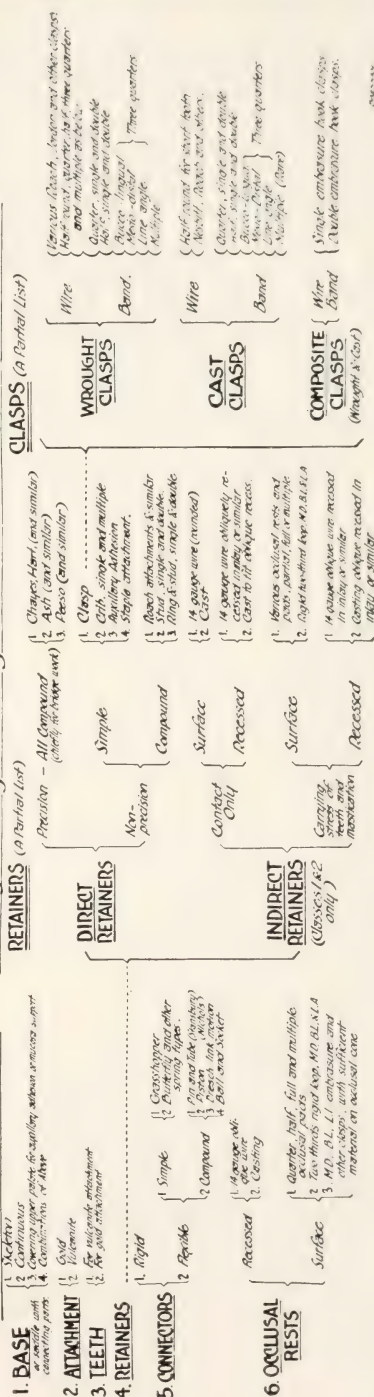 1. BASE
or saddle with
connecting parts.
1. Skeleton
2. Continuous
3. Covering upper palate for auxiliary adhesion or mucosa support
4. Combinations of Above
2. ATTACHMENT
1. Gold
2. Vulcanite
3. TEETH
1. For vulcanite attachment
2. For gold attachment
4. RETAINERS
5. CONNECTORS
1. Rigid
2. Flexible
1 Simple
1 Grasshopper
2 Butterfly and other
spring types.
2 Compound
1 Pin and Tube
2 Piston (Nichols)
3 link motion
4 Ball and Socket
6. OCCLUSAL
RESTS
Recessed
1. 14 gauge obli-
que wire
2. Casting
Surface
1 Quarter, half, full and multiple
occlusal pads
2 Two thirds rigid loop, M.D. B.L. & L.A
3 M.D., B.L., L.I embrasure and
other clasps, with sufficient
material on occlusal cone
RETAINERS (A Partial List)
DIRECT
RETAINERS
Precision - All Compound
(chiefly for bridge work)
1. Chayes, Hart, (and similar)
2. Ash (and similar)
3. Peeso (and similar)
Non-
precision
Simple
1. Clasp
2. Crib, single and multiple
3. Auxiliary Adhesion
4. Staple attachment.
Compound
1 Roach attachments & similar
2 Stud, single and double.
3 Ring & stud, single & double
INDIRECT
RETAINERS
(Classes 1 & 2
only)
Contact
Only
Surface
1. 14 gauge wire (rounded)
2. Cast
Recessed
1. 14 gauge wire obliquely re-
cessed in inlay or similar
2. Cast to fit oblique recess.
Carrying
stress of
teeth and
mastication
Surface
1. Various occlusal rests and
pads, partial, full or multiple
2. Rigid two-third loop, M.D. B.L. & L.A
Recessed
1 14 gauge oblique wire recessed
in inlay or similar
2 Casting oblique recessed in
inlay or similar
CLASPS (A Partial List)
WROUGHT
CLASPS
Wire
Various Roach, and other clasps.
Half round, quarter, half, three quarters
and multiple as below
Band.
Quarter, single and double
Half, single and double
Bucco-lingual
Mesio-distal
Line angle
Three quarters
Multiple
CAST
CLASPS
Wire
Half round for short teeth
Nesbett, Roach and others.
Band
Quarter, single and double
Half, single and double
Bucco-lingual
Mesio-Distal
Line angle
Three quarters
Multiple (Rare)
COMPOSITE
CLASPS
(Wrought & Cast)
Wire
Band
Single embrasure hook clasps
Double embrasure hook clasps.